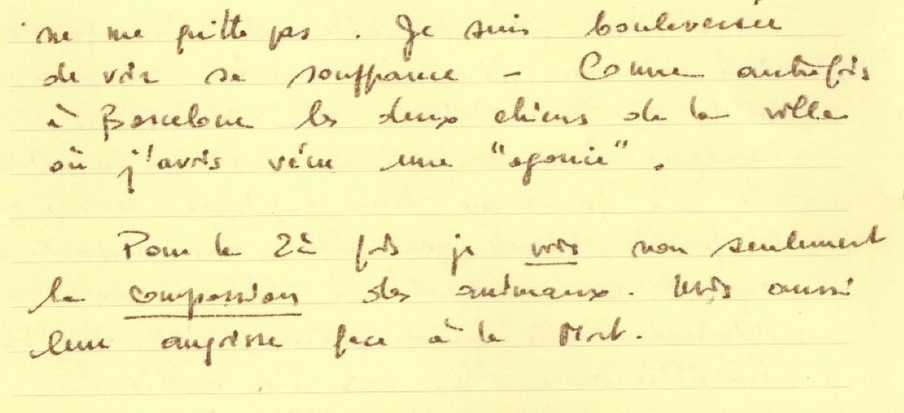 ne me quitte pas. Je suis bouleversée
de voir sa souffrance – Comme autrefois
à Barcelone les deux chiens de la ville
où j'avais vécu une "agonie".
Pour la 2è fois je vois non seulement
la compassion des animaux. Mais aussi
leur angoisse face à la Mort.